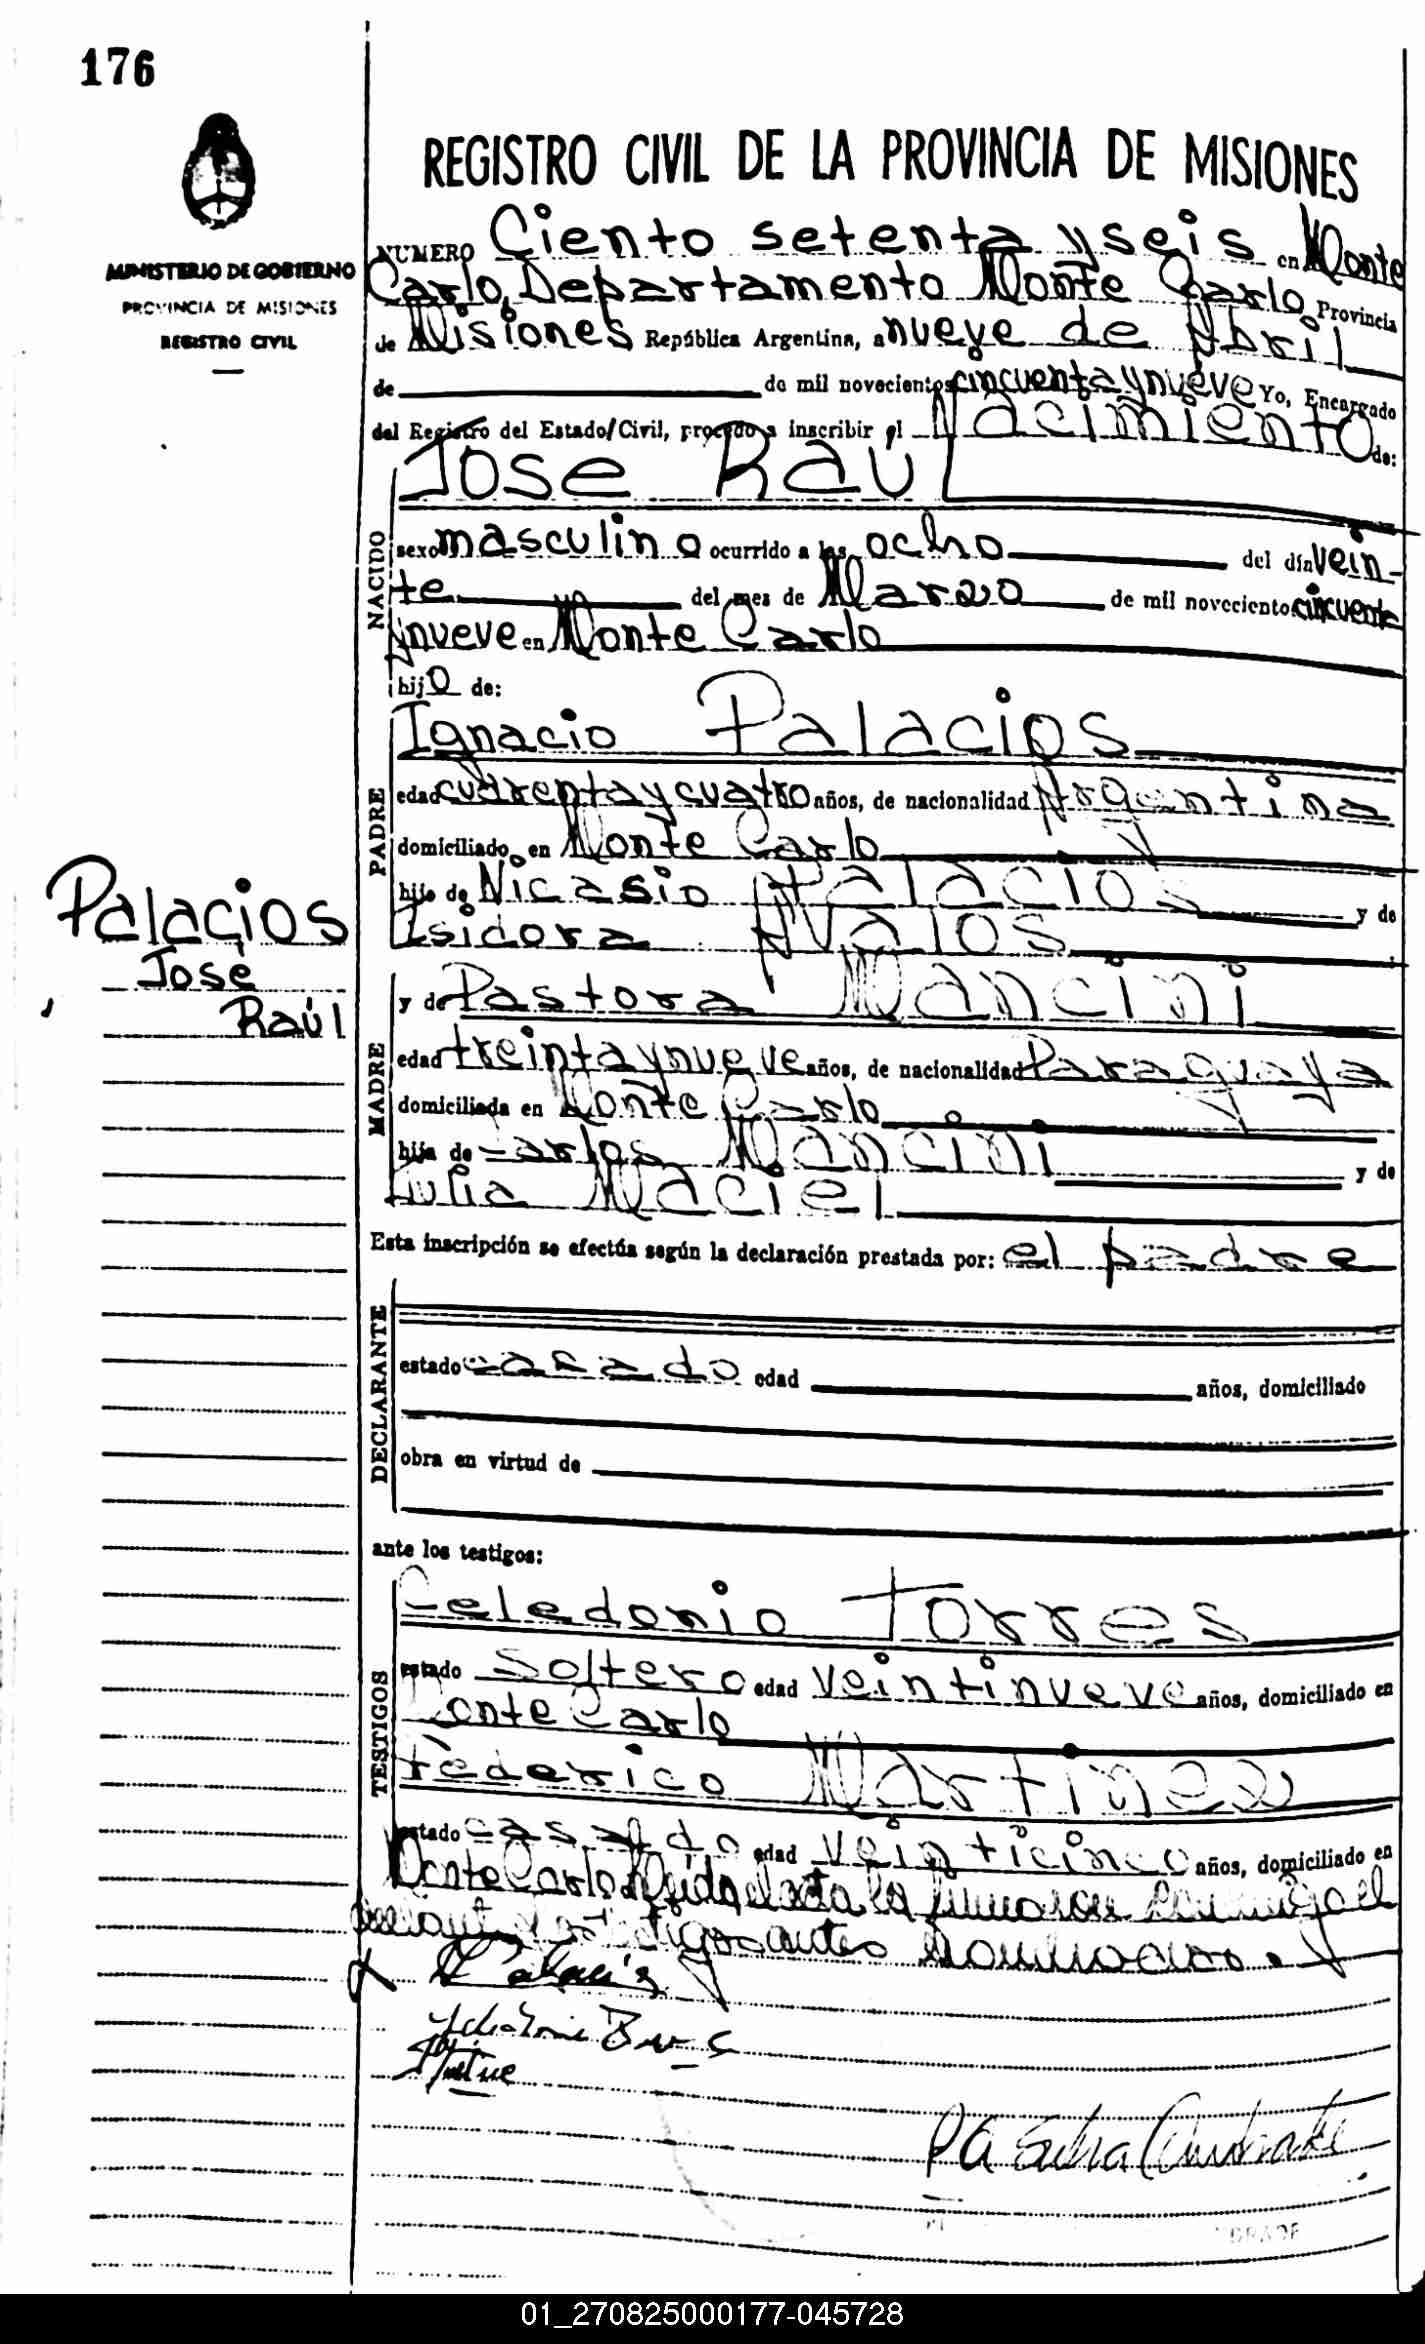 176
MINISTERIO DE GOBIERNO
PROVINCIA DE MISIONES
REGISTRO CIVIL
REGISTRO CIVIL DE LA PROVINCIA DE MISIONES
NUMERO Ciento setenta y seis en Monte
Carlo, Departamento Monte Carlo Provincia
de Misiones República Argentina, a nueve de Abril
de de mil novecientos cincuenta y nueve Yo, Encargado
del Registro del Estado/Civil, procedo a inscribir el Nacimiento de:
NACIDO
Jose Raúl
sexo masculino ocurrido a las ocho del día vein-
te del mes de Marzo de mil novecientos cincuenta
y nueve en Monte Carlo
hijo de:
PADRE
Ignacio Palacios
edad cuarenta y cuatro años, de nacionalidad Argentina
domiciliado en Monte Carlo
hijo de Nicasio Palacios y de
Isidora Avalos
Palacios
Jose
Raúl
MADRE
y de Pastora Mancini
edad treinta y nueve años, de nacionalidad Paraguaya
domiciliada en Monte Carlo
hija de Carlos Mancini y de
Julia Maciel
Esta inscripción se efectúa según la declaración prestada por: el padre
DECLARANTE
estado casado edad años, domiciliado
obra en virtud de
ante los testigos:
TESTIGOS
Celedonio Torres
estado Soltero edad veintinueve años, domiciliado en
Monte Carlo
Federico Martinez
estado casado edad veinticinco años, domiciliado en
Monte Carlo. Leida el acta la firmaron conmigo el
declarante y los testigos antes nombrados.
01_270825000177-045728